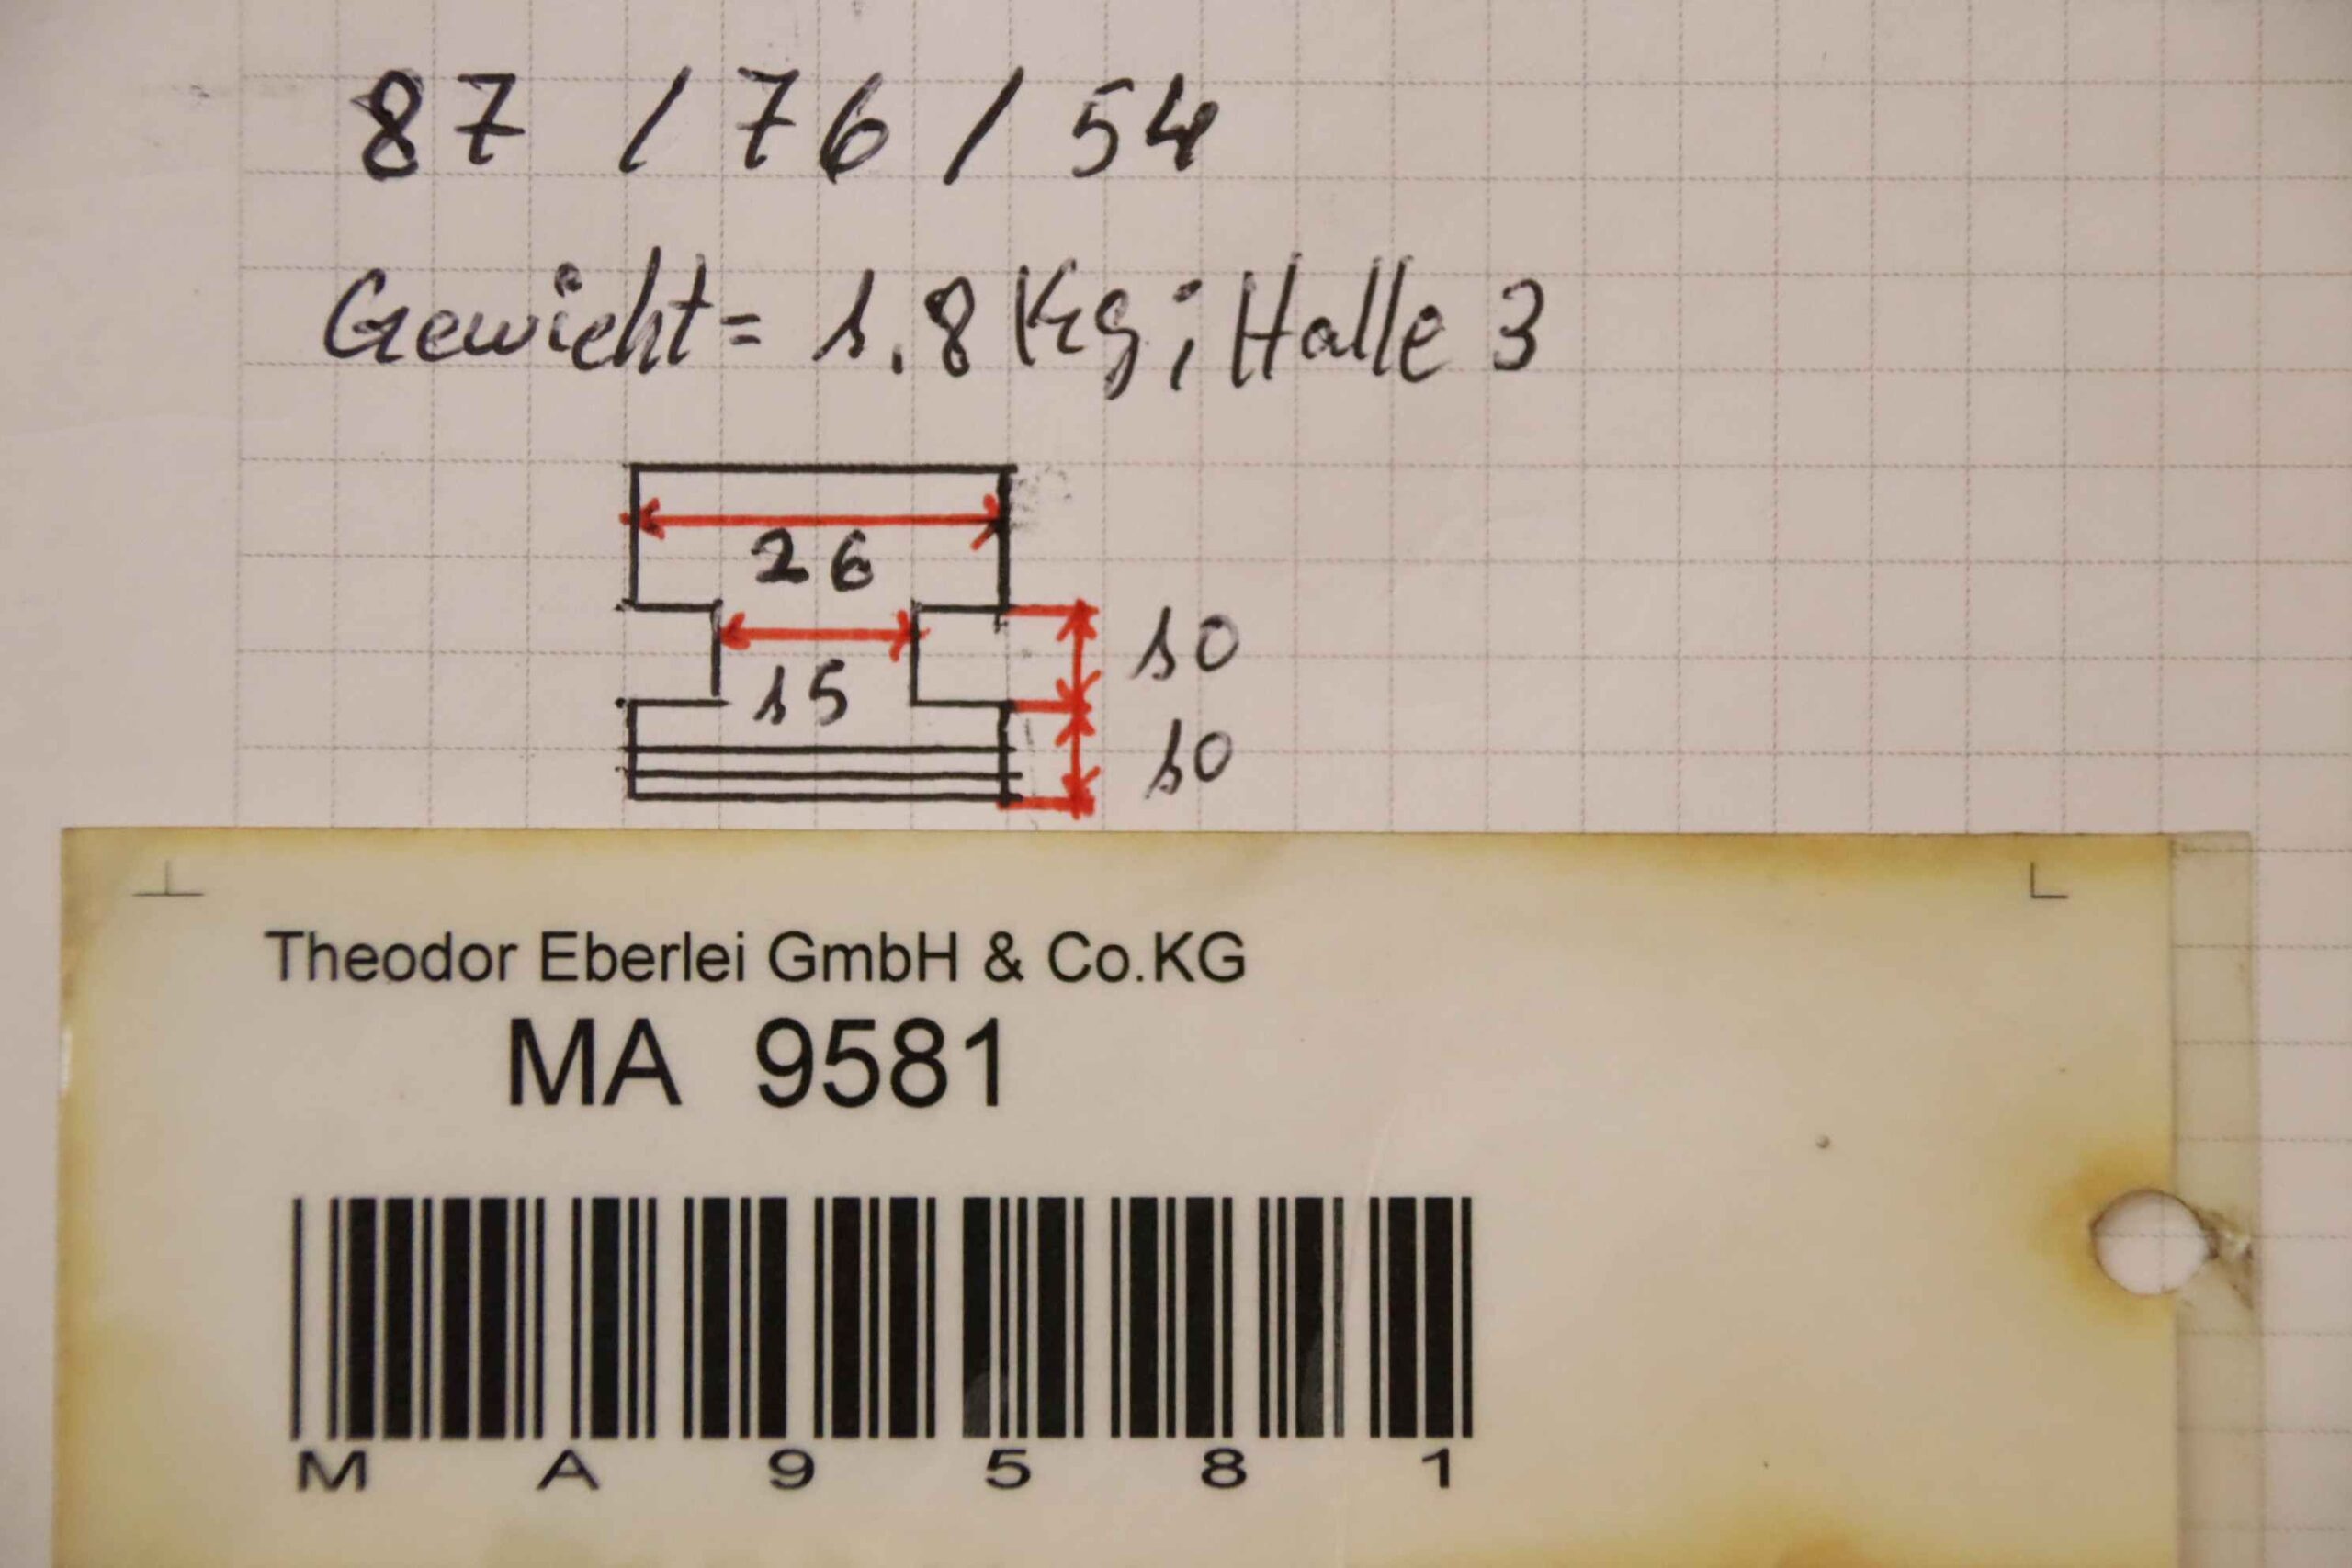 87 / 76 / 54
Gewicht= 1.8 Kg; Halle 3
26
10
15
10
Theodor Eberlei GmbH & Co.KG
MA 9581
M A 9 5 8 1